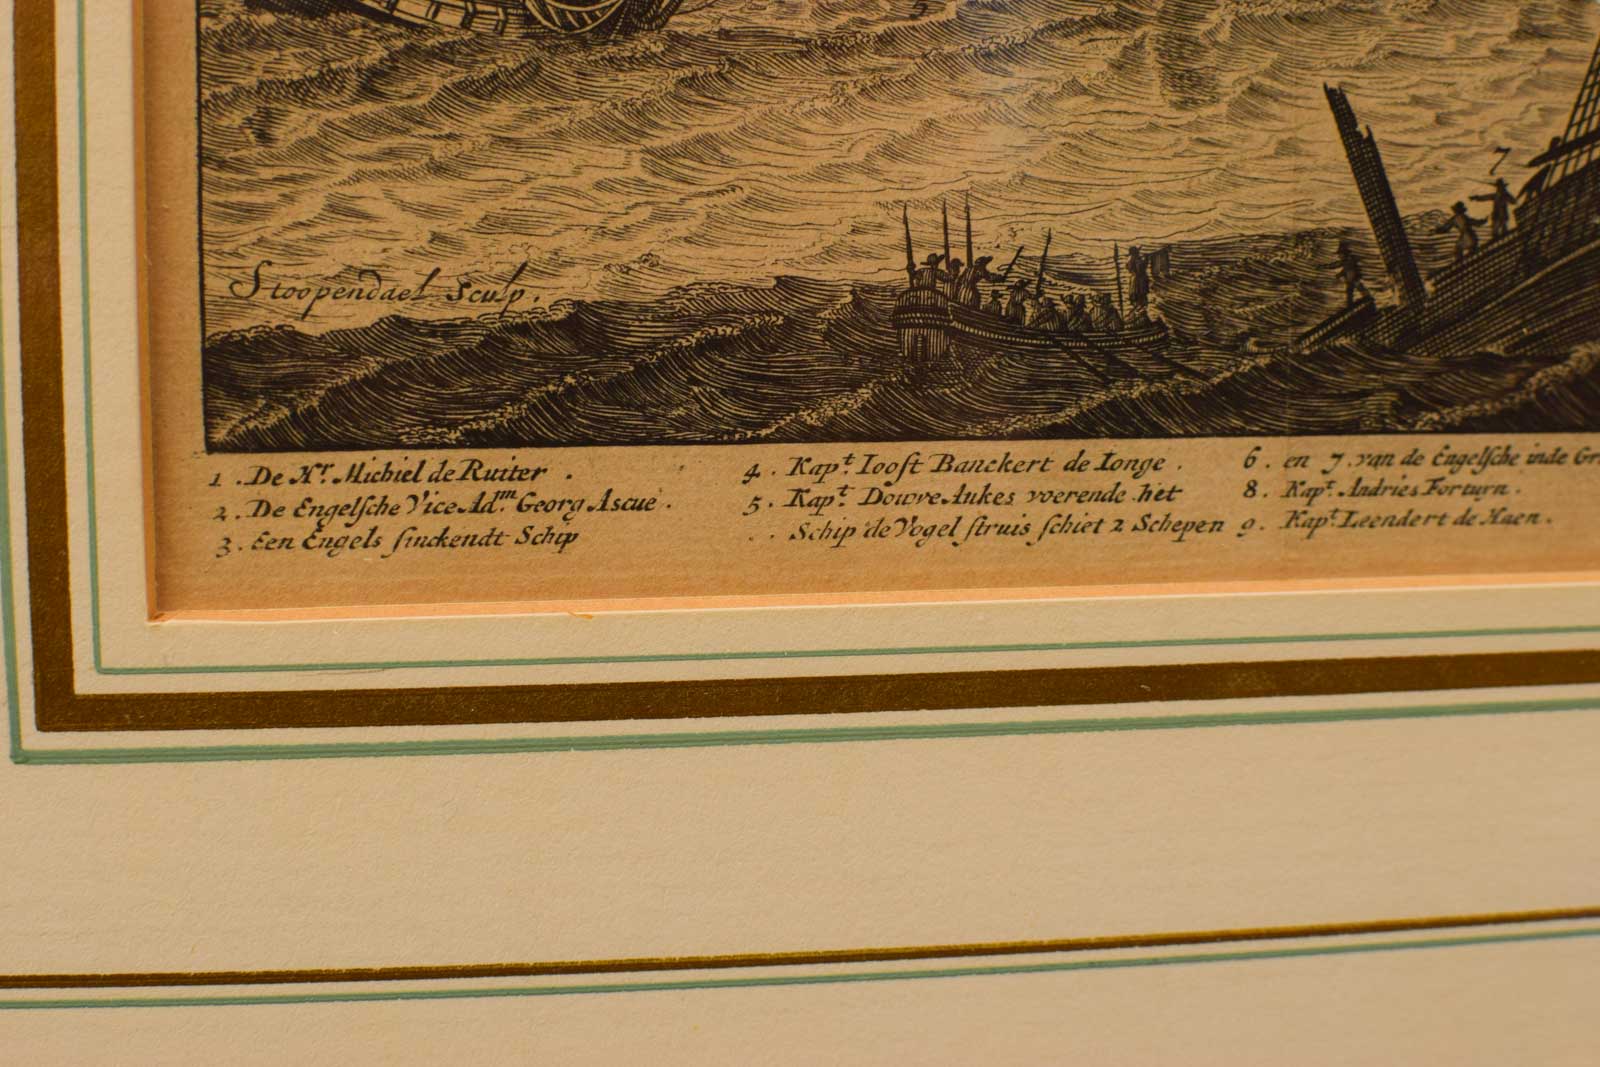 5
7
Stoopendael Sculp.
1. De Hr. Michiel de Ruiter.
2. De Engelsche Vice Adm. Georg Ascue.
3. Een Engels sinckendt Schip
4. Kapt. Ioost Banckert de Ionge.
5. Kapt. Douwe Aukes voerende het
Schip de Vogel struis schiet 2 Schepen
6. en 7. van de Engelsche inde
8. Kapt. Andries Forturn.
9. Kapt. Leendert de Haen.